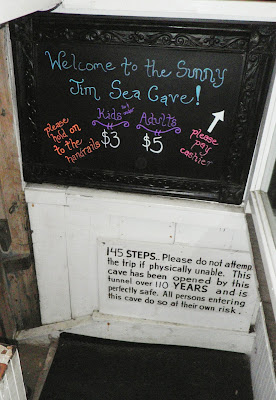 Welcome to the Sunny
Jim Sea Cave!
Kids
Adults
$3
$5
please
hold on
to the
handrails
please
pay
cashier
145 STEPS.. Please do not attemp
the trip if physically unable. This
cave has been opened by this
tunnel over 110 YEARS and is
perfectly safe. All persons entering
this cave do so at their own risk.